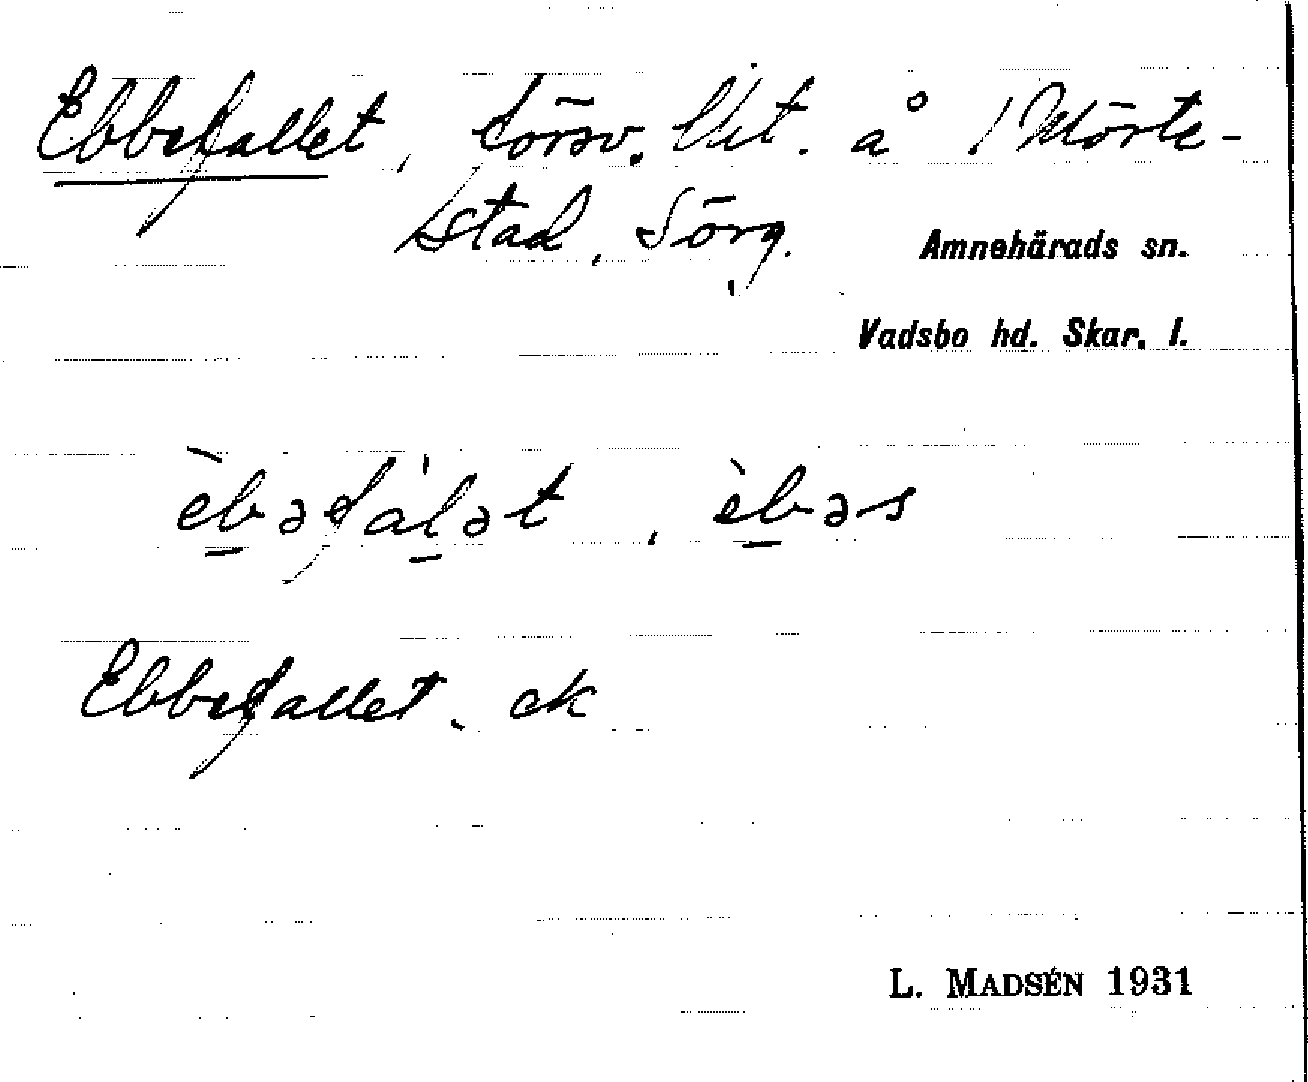 Ebbefallet, försv. lht. å 1 Mörte-
stad, Sörg.
Amnehärads sn.
Vadsbo hd. Skar. l.
èb̲əfál̲ət, èb̲əs
Ebbefallet. ek
L. MADSÉN 1931